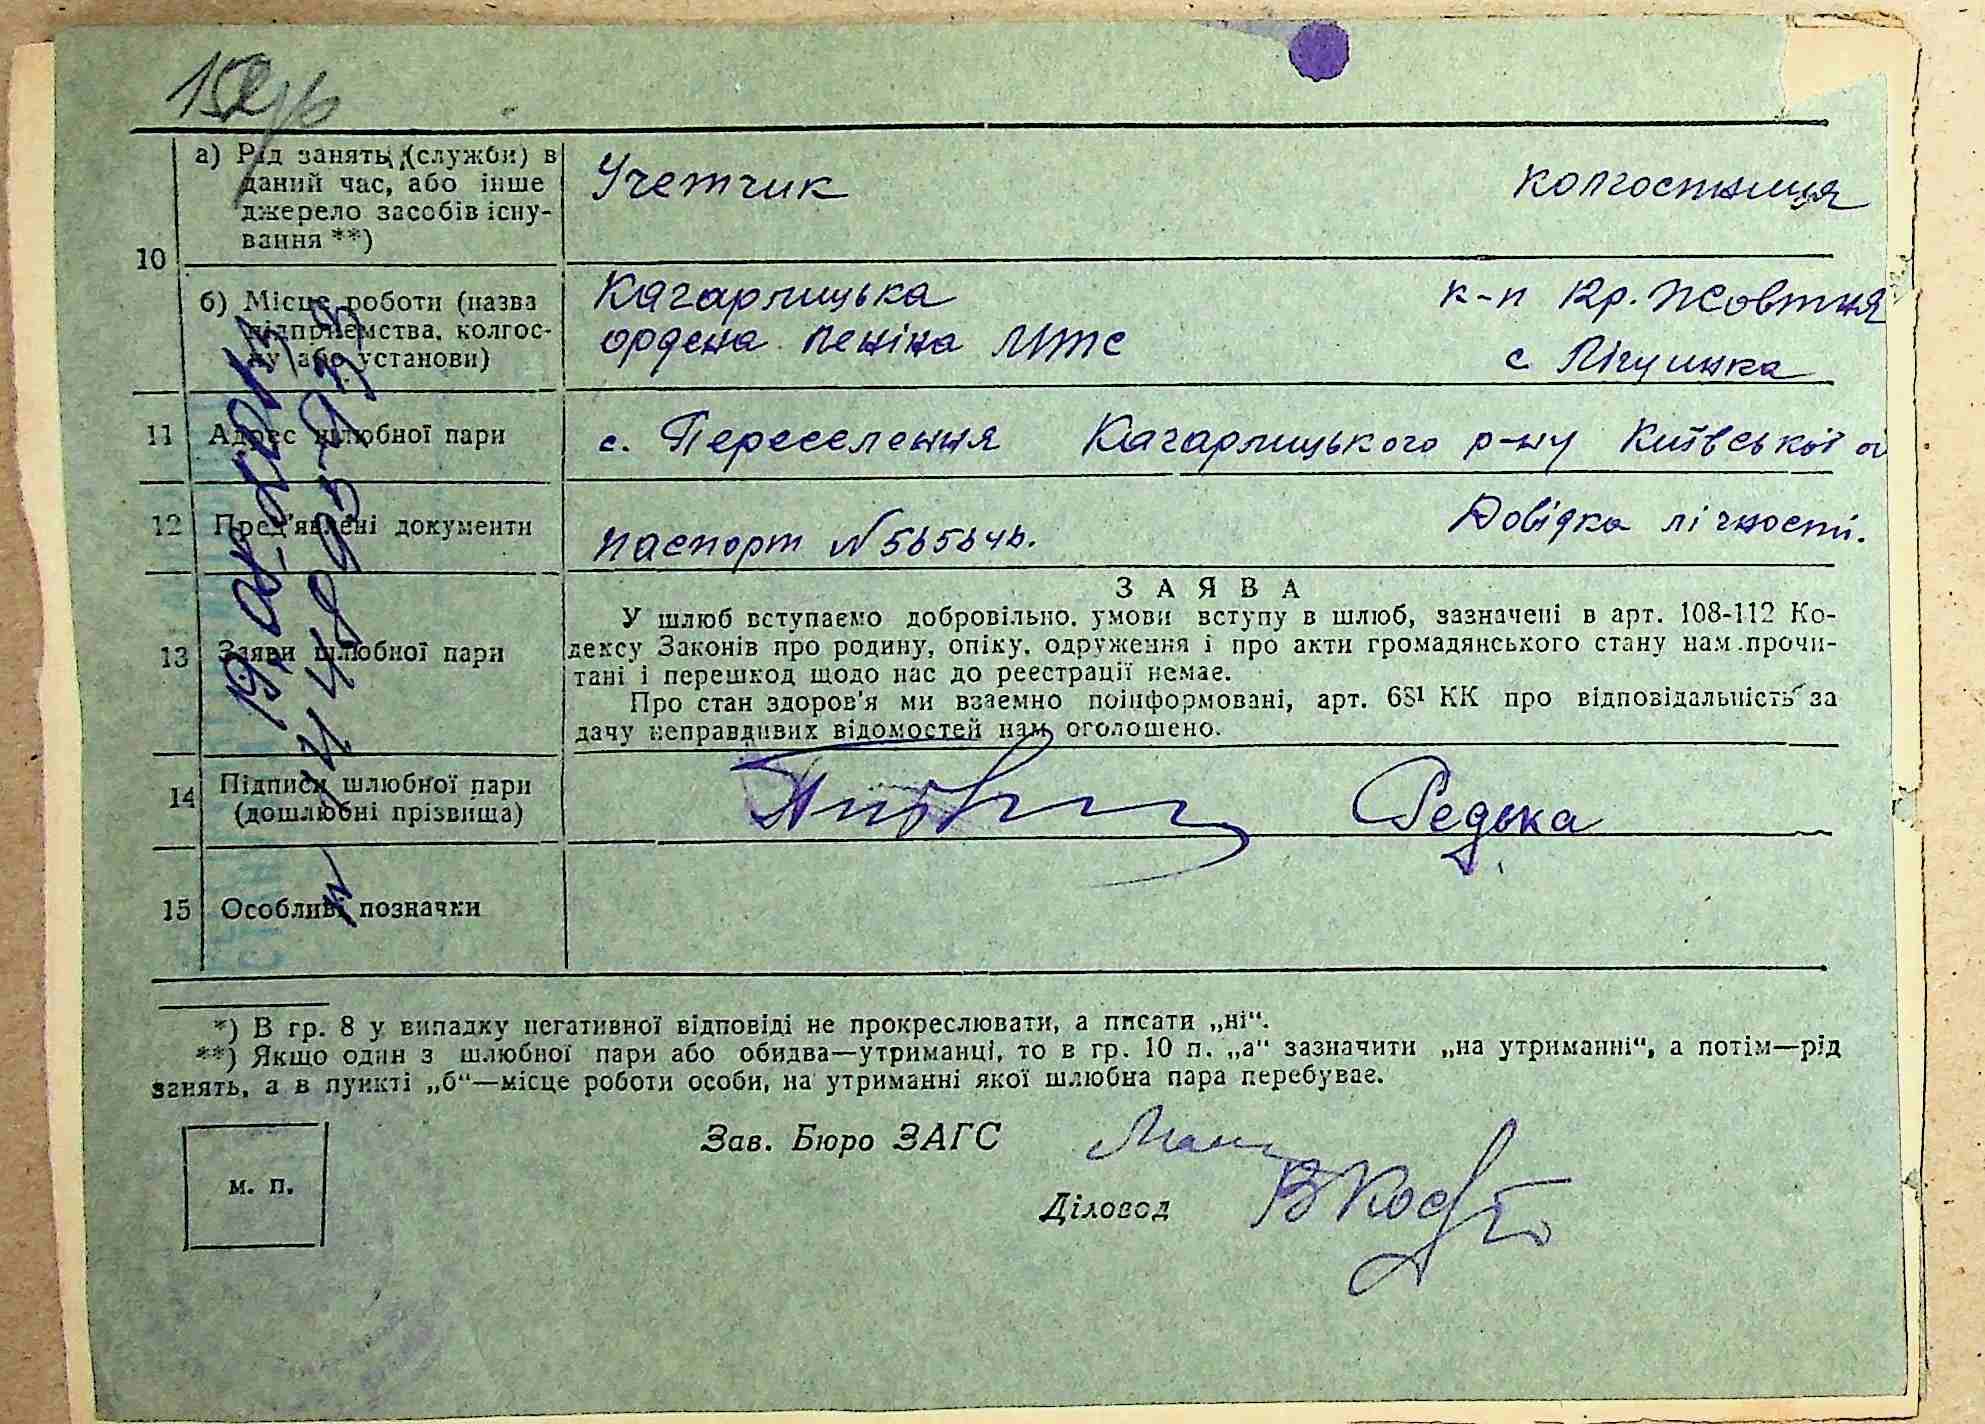 а) Рід занять (служби) в
даний час, або інше
джерело засобів існу-
вання **)
Учетчик
колгоспниця
10
б) Місце роботи (назва
підприємства, колгос-
пу або установи)
Кагарлицька
ордена Леніна МТС
к-п Кр. Жовтня
с.
11 Адрес шлюбної пари
с. Переселення Кагарлицького р-ну Київської
12 Пред'явлені документи
паспорт №
Довідка лічності.
13 Заяви шлюбної пари
ЗАЯВА
У шлюб вступаємо добровільно, умови вступу в шлюб, зазначені в арт. 108-112 Ко-
дексу Законів про родину, опіку, одруження і про акти громадянського стану нам прочи-
тані і перешкод щодо нас до реєстрації немає.
Про стан здоров'я ми взаємно поінформовані, арт. 68¹ КК про відповідальність за
дачу неправдивих відомостей нам оголошено.
14 Підписи шлюбної пари
(дошлюбні прізвища)
Редька
15 Особливі позначки
*) В гр. 8 у випадку негативної відповіді не прокреслювати, а писати „ні“.
**) Якщо один з шлюбної пари або обидва—утриманці, то в гр. 10 п. „а“ зазначити „на утриманні“, а потім—рід
занять, а в пункті „б“—місце роботи особи, на утриманні якої шлюбна пара перебуває.
Зав. Бюро ЗАГС
м. п.
Діловод